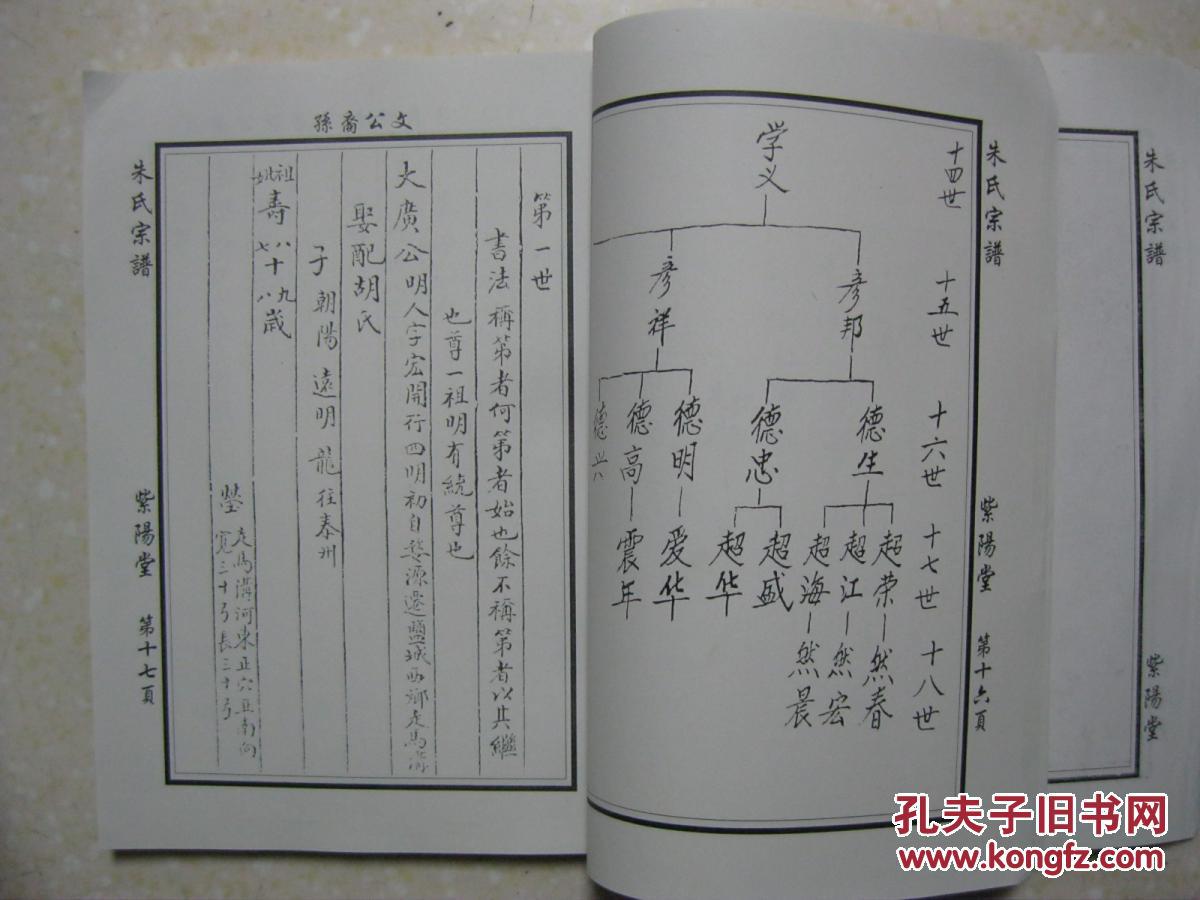 朱氏宗譜
紫陽堂
第十六頁
十四世
十五世
十六世
十七世
十八世
学义
彦邦
彦祥
德生
德忠
德明
德高
德兴
超荣
超江
超海
超盛
超华
爱华
震年
然春
然宏
然晨
文公裔孫
第一世
書法稱第者何第者始也餘不稱第者以其繼
也尊一祖明有統尊也
大廣公明人字宏開行四明初自婺源遷鹽城西鄉走馬溝
娶配胡氏
子朝陽遠明龍往泰州
祖妣壽八十九七十八歲
塋走馬溝河東正穴亙南向
寬三十弓長三十弓
朱氏宗譜
紫陽堂
第十七頁
朱氏宗譜
紫陽堂
孔夫子旧书网
www.kongfz.com